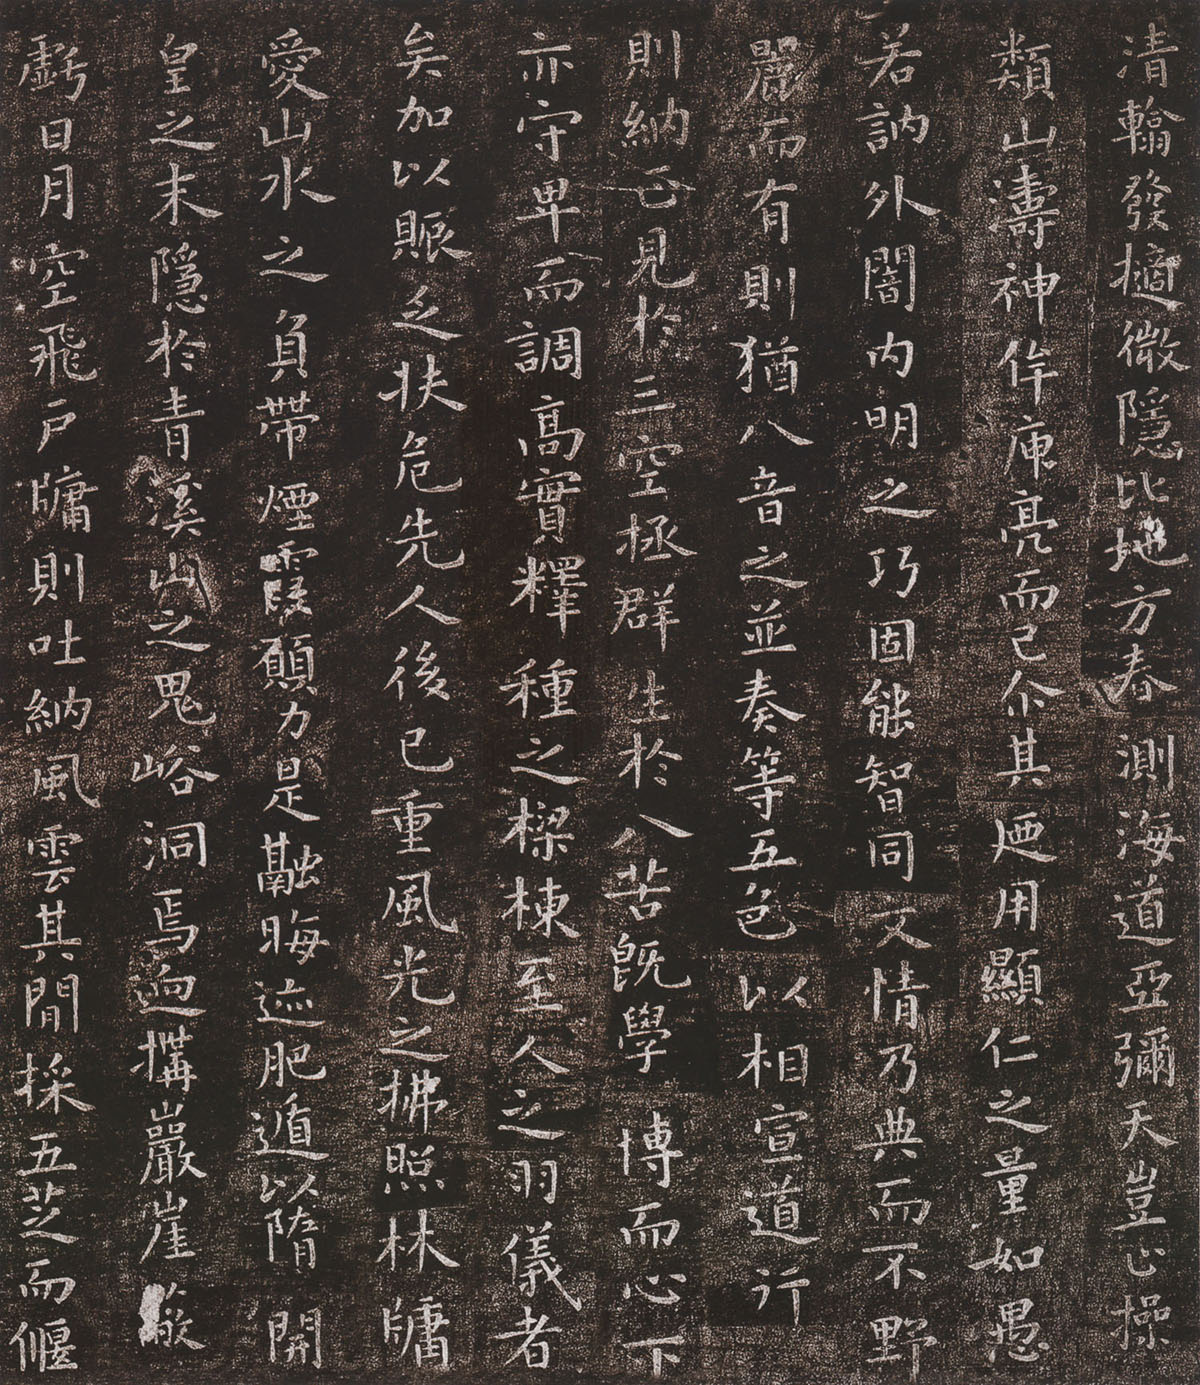 清翰發擿微隱比地方春測海道亞彌天豈止操
類山濤神侔庾亮而已尒其迺用顯仁之量如愚
若訥外闇内明之巧固能智同文情乃典而不野
麗而有則猶八音之並奏等五色以相宣道行
則納正見於三空拯群生於八苦既學博而心下
亦守卑而調高實釋種之樑棟至人之羽儀者
矣加以賑乏扶危先人後己重風光之拂照林牖
愛山水之負帶煙霞願力是融晦迹肥遁以隋開
皇之末隱於青溪山之鬼峪洞焉迥構巖崖蔽
虧日月空飛戶牖則吐納風雲其間採五芝而偃